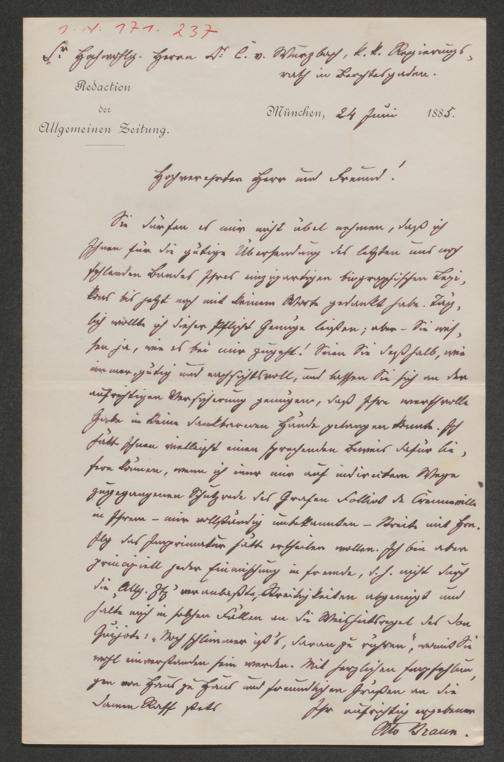 I. N. 171. 237
Sr. Hochwohlg. Herrn Dr. C. v. Wurzbach, k. k. Regierungs-
rath in Berchtesgaden.
Redaction
der
Allgemeinen Zeitung.
München, 24 Juni 1885.
Hochverehrter Herr und Freund!
Sie dürfen es mir nicht übel nehmen, daß ich
Ihnen für die gütige Übersendung des letzten uns noch
fehlenden Bandes Ihres einzigartigen biographischen Lexi-
kons bis jetzt noch mit keinem Worte gedankt habe. Täg-
lich wollte ich dieser Pflicht Genüge leisten; aber – Sie wis-
sen ja, wie es bei mir zugeht! Seien Sie deßhalb, wie
immer, gütig und nachsichtsvoll, und lassen Sie sich an der
aufrichtigen Versicherung genügen, daß Ihre werthvolle
Gabe in keine dankbareren Hände gelangen konnte. Ich
hätte Ihnen vielleicht einen sprechenden Beweis dafür lie-
fern können, wenn ich einer mir auf indirectem Wege
zugegangenen Schutzrede des Grafen Folliot de Crenneville
in Ihrem – mir vollständig unbekannten – Streite mit
das Imprimatur hätte ertheilen wollen. Ich bin aber
principiell jeder Einmischung in fremde, d. h. nicht durch
die „Allg. Ztg" veranlaßte, Streitigkeiten abgeneigt und
halte mich in solchen Fällen an die Weisheitsregel des Don
Quijote: „Noch schlimmer ist's, daran zu rühren", womit Sie
wohl einverstanden sein werden. Mit herzlichen Empfehlun-
gen von Haus zu Haus und freundlichen Grüßen an die
Damen Raff stets
Ihr aufrichtig ergebener
Otto Braun.